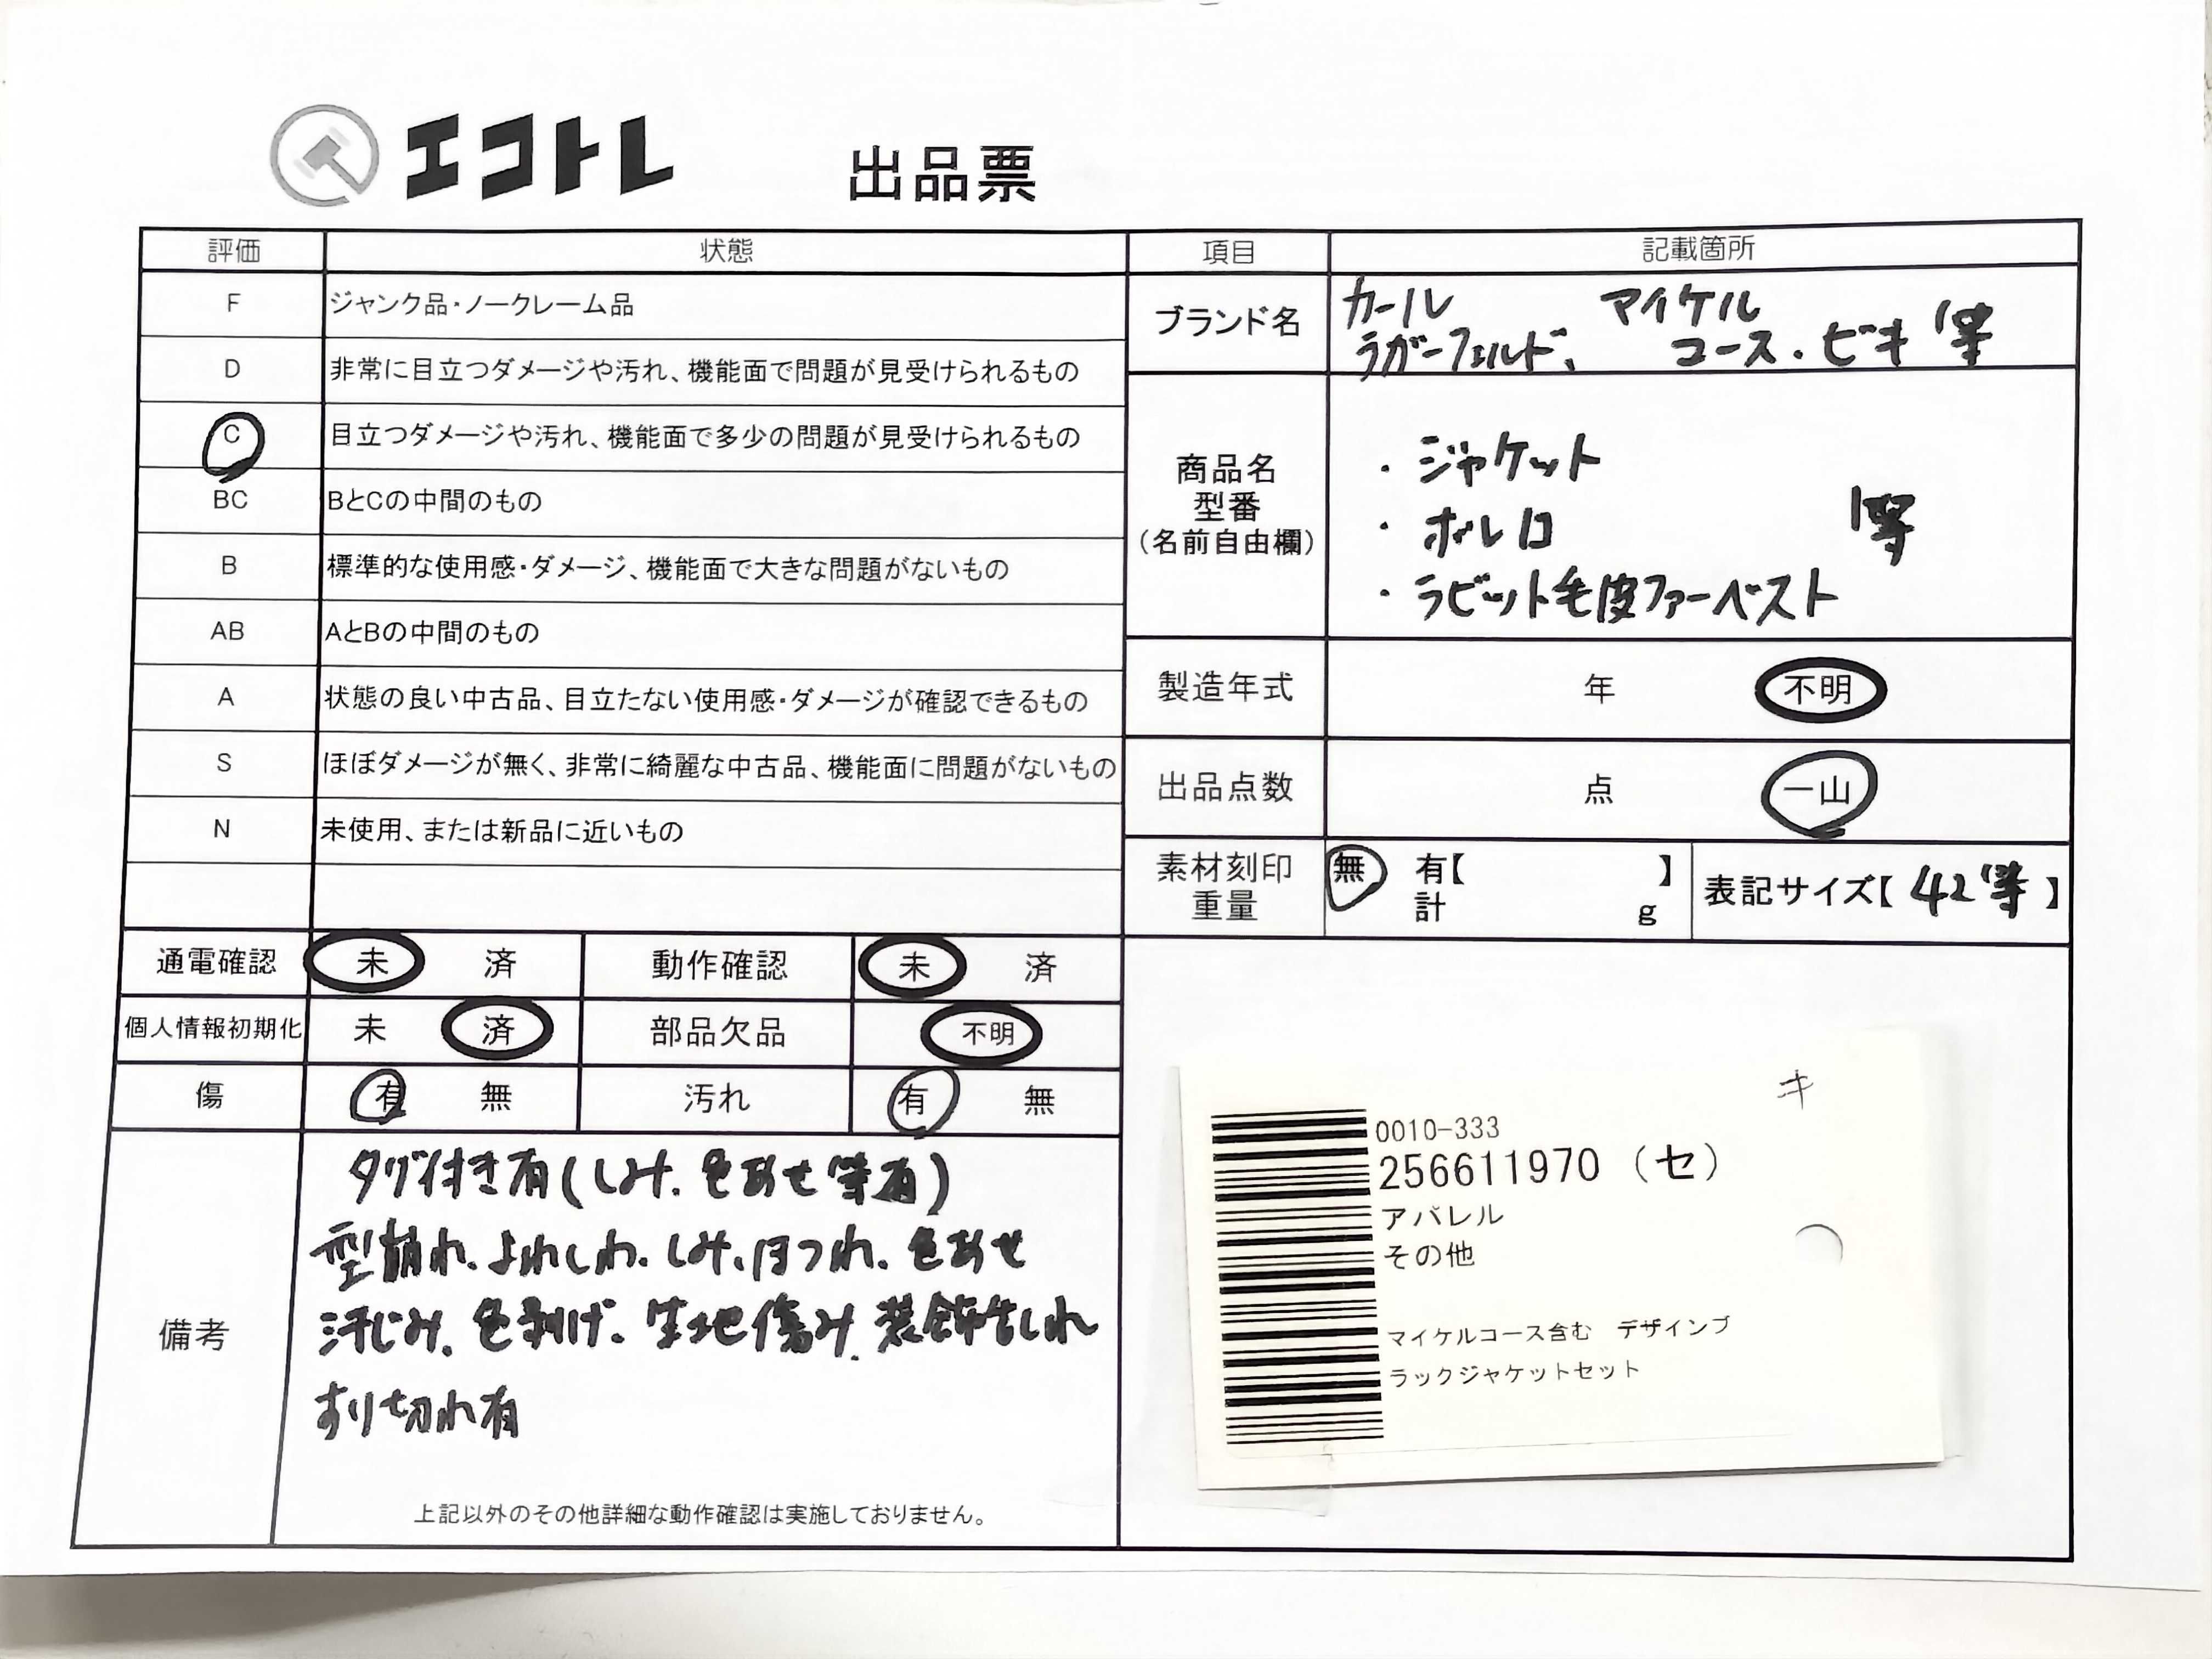 エコトレ 出品票
評価 状態 項目 記載箇所
F ジャンク品・ノークレーム品
D 非常に目立つダメージや汚れ、機能面で問題が見受けられるもの
C 目立つダメージや汚れ、機能面で多少の問題が見受けられるもの
BC BとCの中間のもの
B 標準的な使用感・ダメージ、機能面で大きな問題がないもの
AB AとBの中間のもの
A 状態の良い中古品、目立たない使用感・ダメージが確認できるもの
S ほぼダメージが無く、非常に綺麗な中古品、機能面に問題がないもの
N 未使用、または新品に近いもの
ブランド名
カール マイケル
ラガーフェルド、 コース・ビキ 等
商品名
型番
(名前自由欄)
・ジャケット
・ボレロ 等
・ラビット毛皮ファーベスト
製造年式 年 不明
出品点数 点 一山
素材刻印 無 有【 】
重量 計 g
表記サイズ【42等】
通電確認 未 済 動作確認 未 済
個人情報初期化 未 済 部品欠品 不明
傷 有 無 汚れ 有 無
備考
タグ付き有(しみ、色あせ等有)
型崩れ、よれしわ、しみ、ほつれ、色あせ
汗じみ、色剥げ、生地傷み、装飾よれ
すり切れ有
上記以外のその他詳細な動作確認は実施しておりません。
キ
0010-333
256611970 (セ)
アパレル
その他
マイケルコース含む デザインブ
ラックジャケットセット